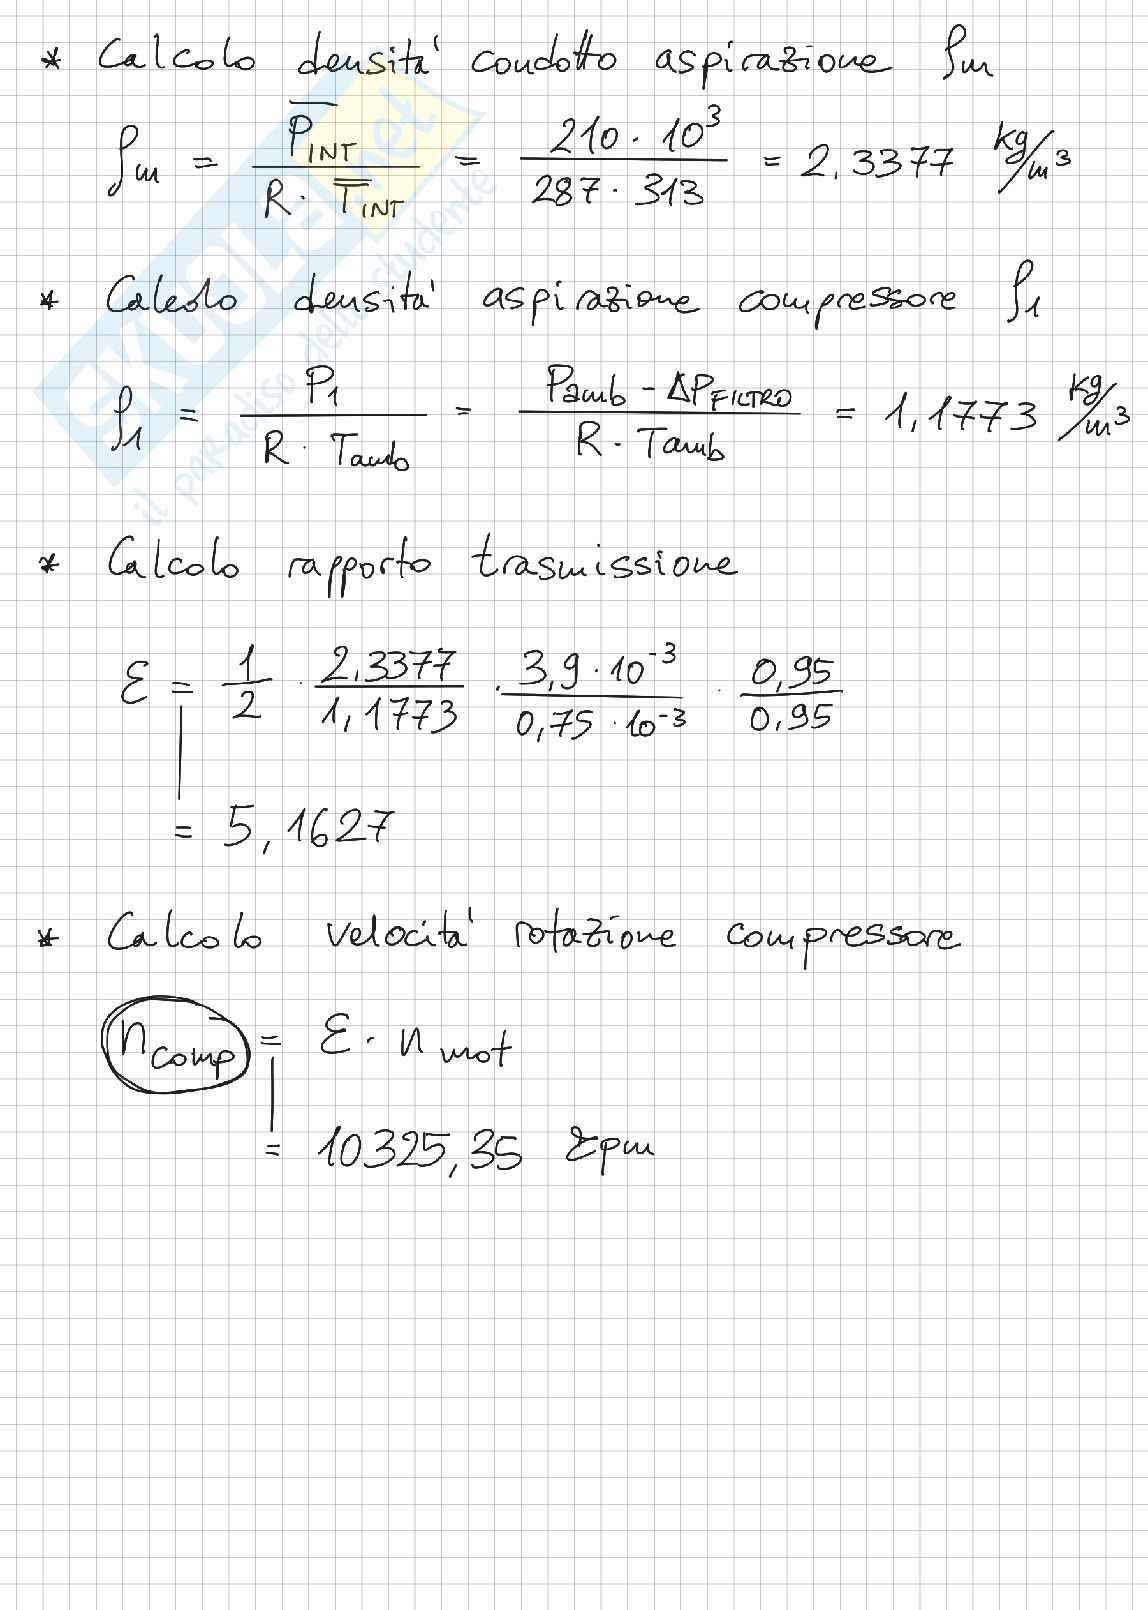 * Calcolo densita' condotto aspirazione ρm
ρm = P̅INT / (R · T̅INT) = 210 · 10³ / (287 · 313) = 2,3377 kg/m³
* Calcolo densita' aspirazione compressore ρ1
ρ1 = P1 / (R · Tamb) = (Pamb - ΔPFILTRO) / (R · Tamb) = 1,1773 kg/m³
* Calcolo rapporto trasmissione
ε = 1/2 · 2,3377/1,1773 · 3,9 · 10⁻³ / 0,75 · 10⁻³ · 0,95/0,95
= 5,1627
* Calcolo velocita' rotazione compressore
ncomp = ε · nmot
= 10325,35 rpm
SKUOLA.net
il paradiso dello studente